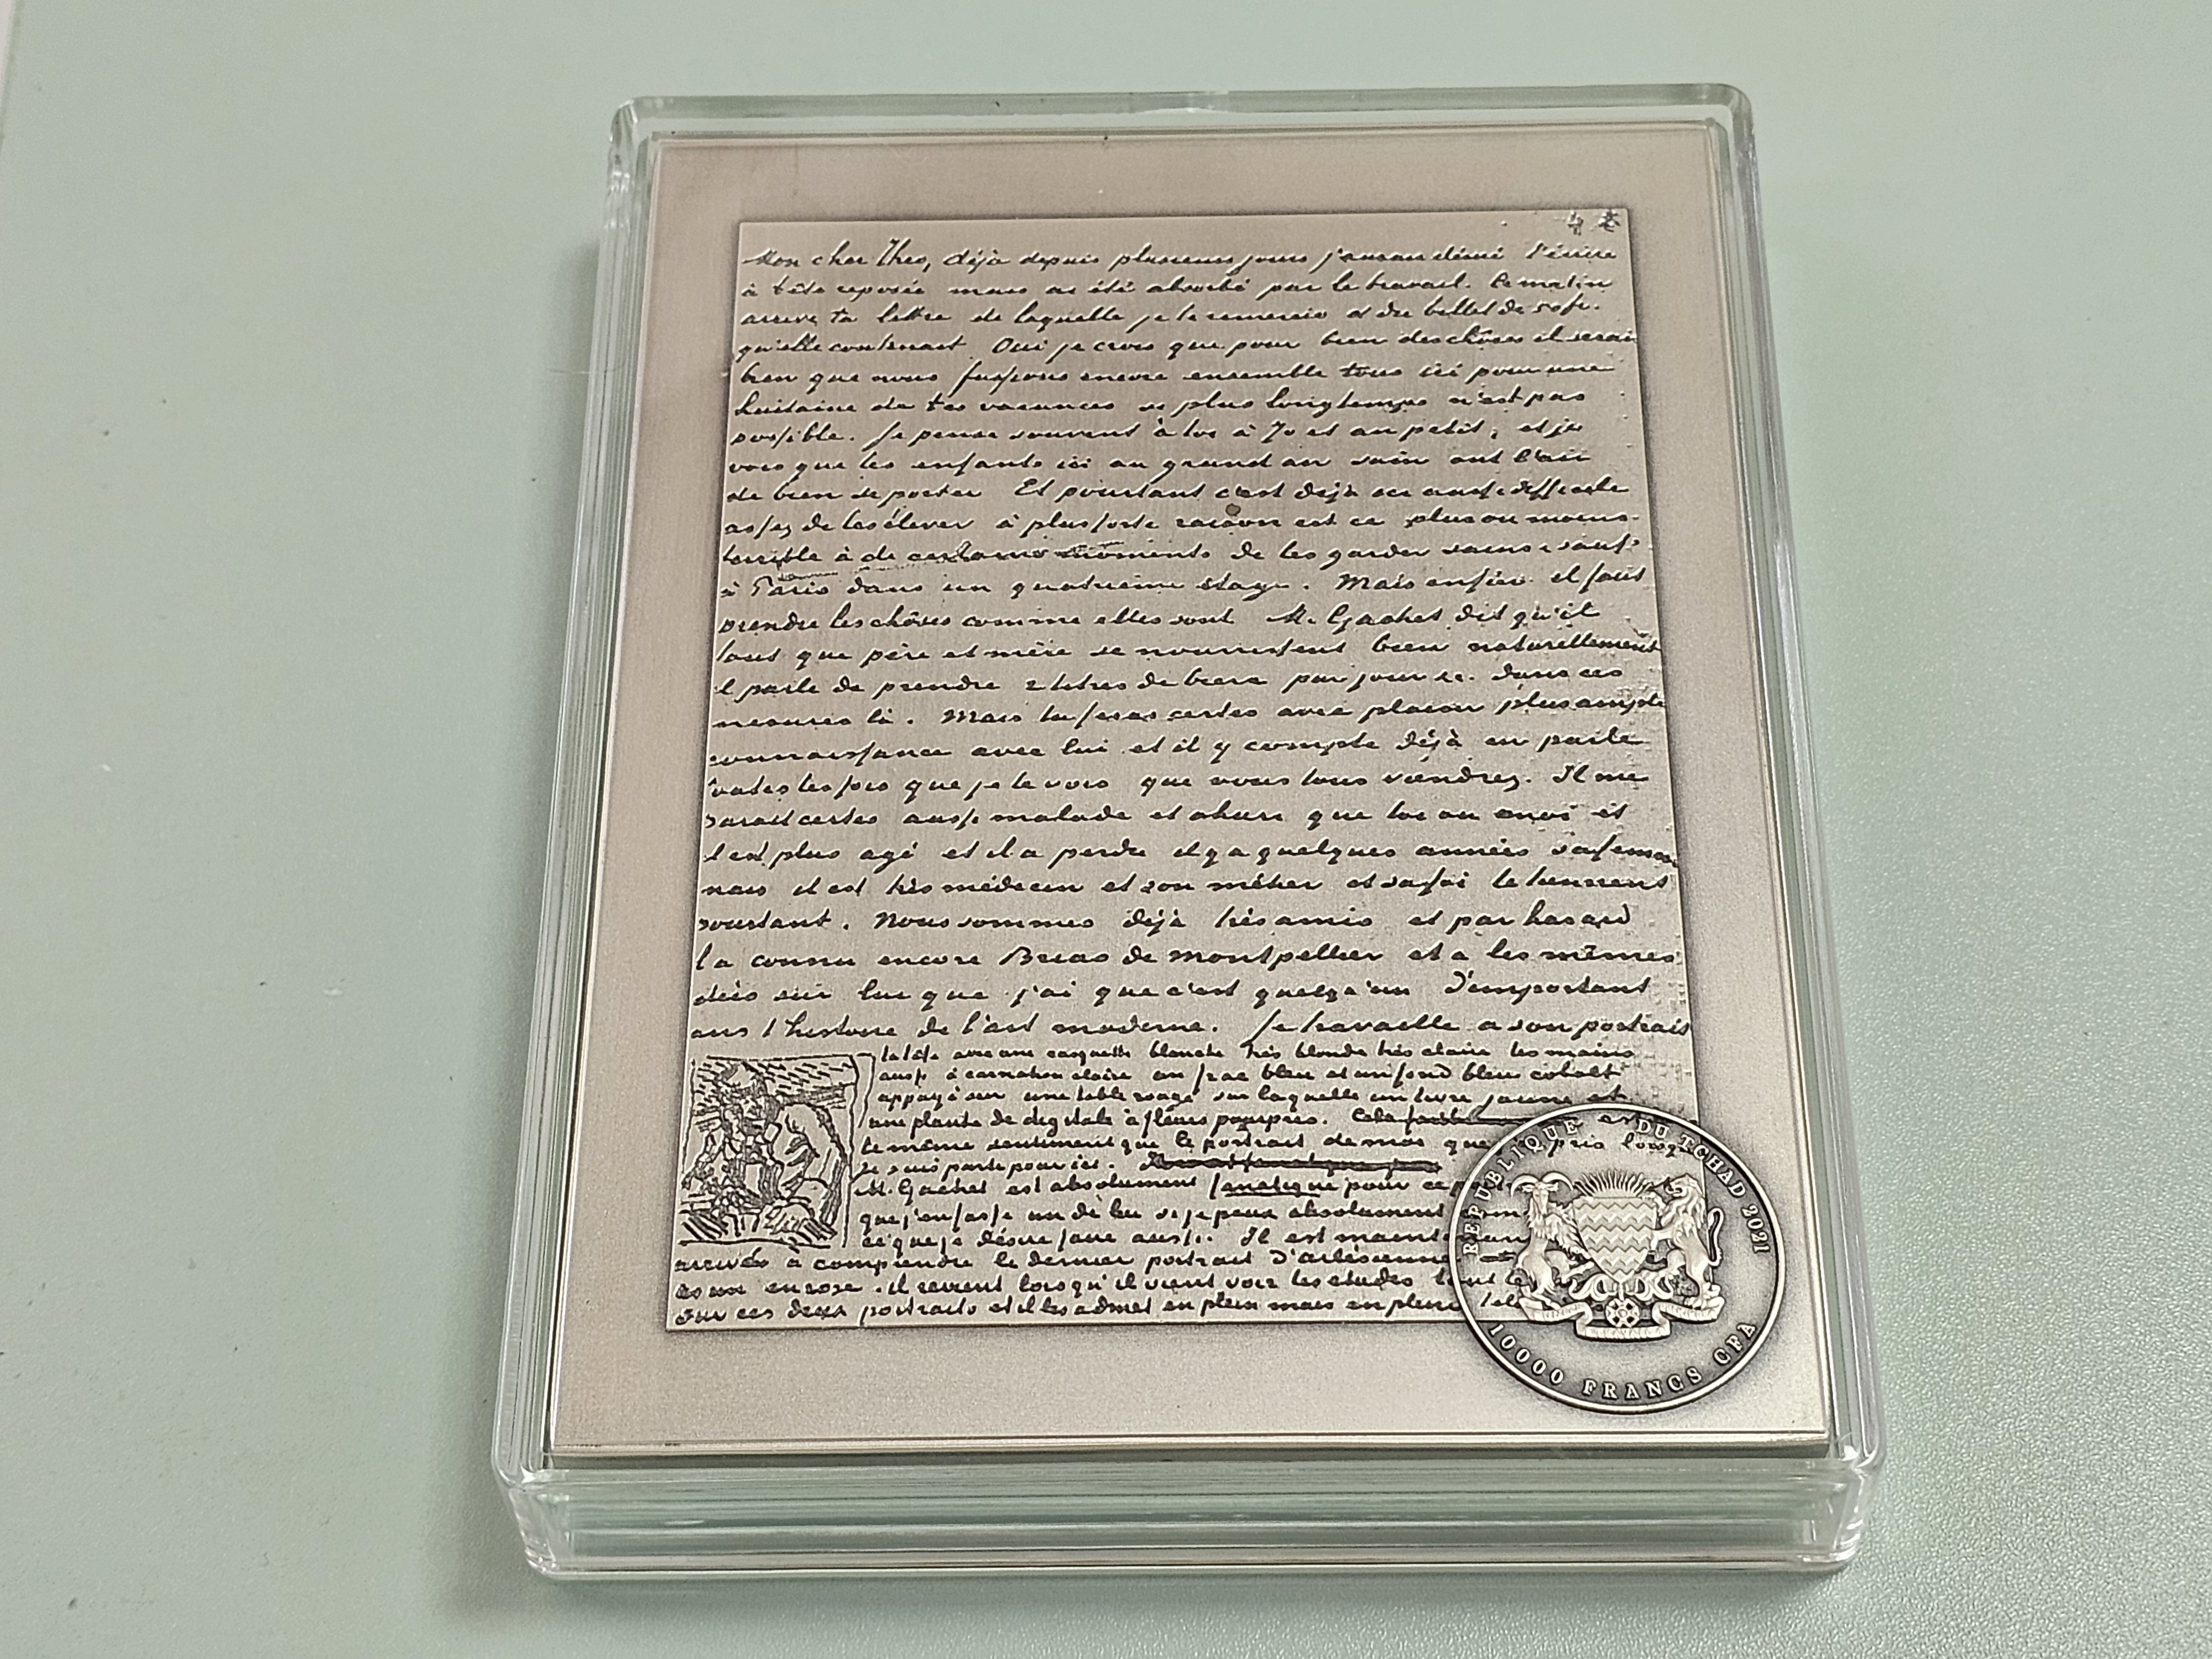 Mon cher Theo, déjà depuis plusieurs jours j'aurais désiré t'écrire
à tête reposée mais ai été absorbé par le travail. Ce matin
arrive ta lettre de laquelle je te remercie et du billet de 50 fr.
qu'elle contenait Oui je crois que pour bien des choses il serait
bien que nous fussions encore ensemble tous ici pour une
huitaine de tes vacances si plus longtemps n'est pas
possible. Je pense souvent à toi à Jo et au petit, et je
vois que les enfants ici au grand air sain ont l'air
de bien se porter Et pourtant c'est déjà ici aussi difficile
assez de les élever à plus forte raison est ce plus ou moins
terrible à de certains moments de les garder sains & saufs
à Paris dans un quatrième étage. Mais enfin il faut
prendre les chôses comme elles sont M. Gachet dit qu'il
faut que père et mère se nourrissent bien naturellement
il parle de prendre 2 litres de bière par jour &c. dans ces
mesures là. Mais tu feras certes avec plaisir plus ample
connaissance avec lui et il y compte déjà en parle
toutes les fois que je le vois que vous tous viendrez. Il me
parait certes aussi malade et ahuri que toi ou moi et
il est plus agé et il a perdu il y a quelques années sa femme
mais il est très médecin et son métier et sa foi le tiennent
pourtant. Nous sommes déjà très amis et par hasard
il a connu encore Brias de Montpellier et a les mêmes
idées sur lui que j'ai que c'est quelqu'un d'important
dans l'histoire de l'art moderne. Je travaille a son portrait
la tête avec une casquette blanche très blonde très claire les mains
aussi à carnation claire un frac bleu et un fond bleu cobalt
appuyé sur une table rouge sur laquelle un livre jaune et
une plante de digitale à fleurs pourpres. Cela
le même sentiment que le portrait de moi que pris lorsque
je suis parti pour ici.
M. Gachet est absolument fanatique pour ce
que j'en fasse un de lui si je peux absolument
ce que je désire faire aussi. Il est maintenant
arrivé à comprendre le dernier portrait d'arlésienne
as un en rose. il revient lorsqu'il vient voir les études tout le
sur ces deux portraits et il les admet en plein mais en plein
REPUBLIQUE DU TCHAD 2021
10000 FRANCS CFA